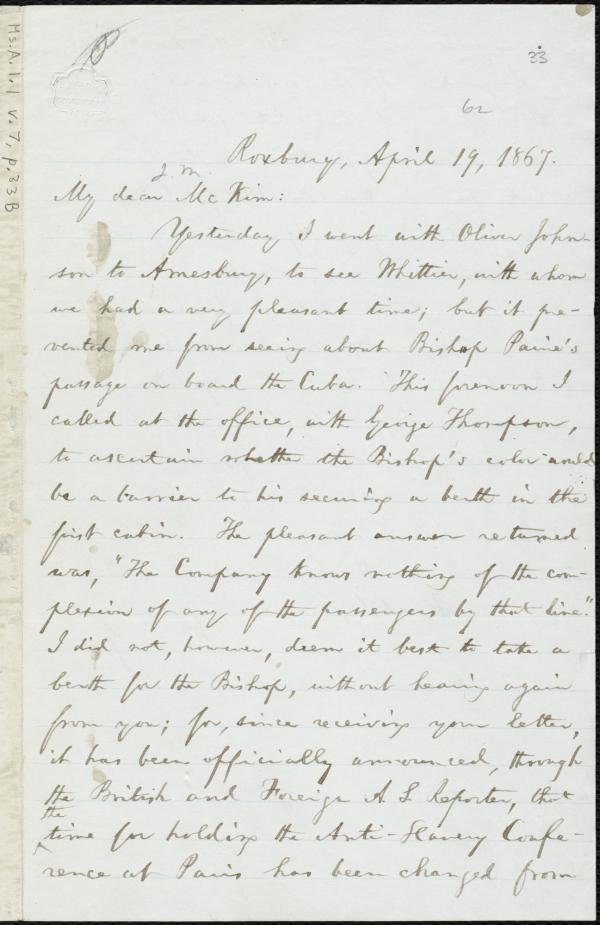 33
62
Roxbury, April 19, 1867.
J. M.
My dear McKim:
Yesterday I went with Oliver John-
son to Amesbury, to see Whittier, with whom
we had a very pleasant time; but it pre-
vented me from seeing about Bishop Paine's
passage on board the Cuba. This forenoon I
called at the office, with George Thompson,
to ascertain whether the Bishop's color would
be a barrier to his securing a berth in the
first cabin. The pleasant answer returned
was, "The Company knows nothing of the com-
plexion of any of the passengers by that line."
I did not, however, deem it best to take a
berth for the Bishop, without hearing again
from you; for, since receiving your letter,
it has been officially announced, through
the British and Foreign A. S. Reporter, that
the
time for holding the Anti-Slavery Confe-
rence at Paris has been changed from
Ms.A.1.1 v.7, p.33B